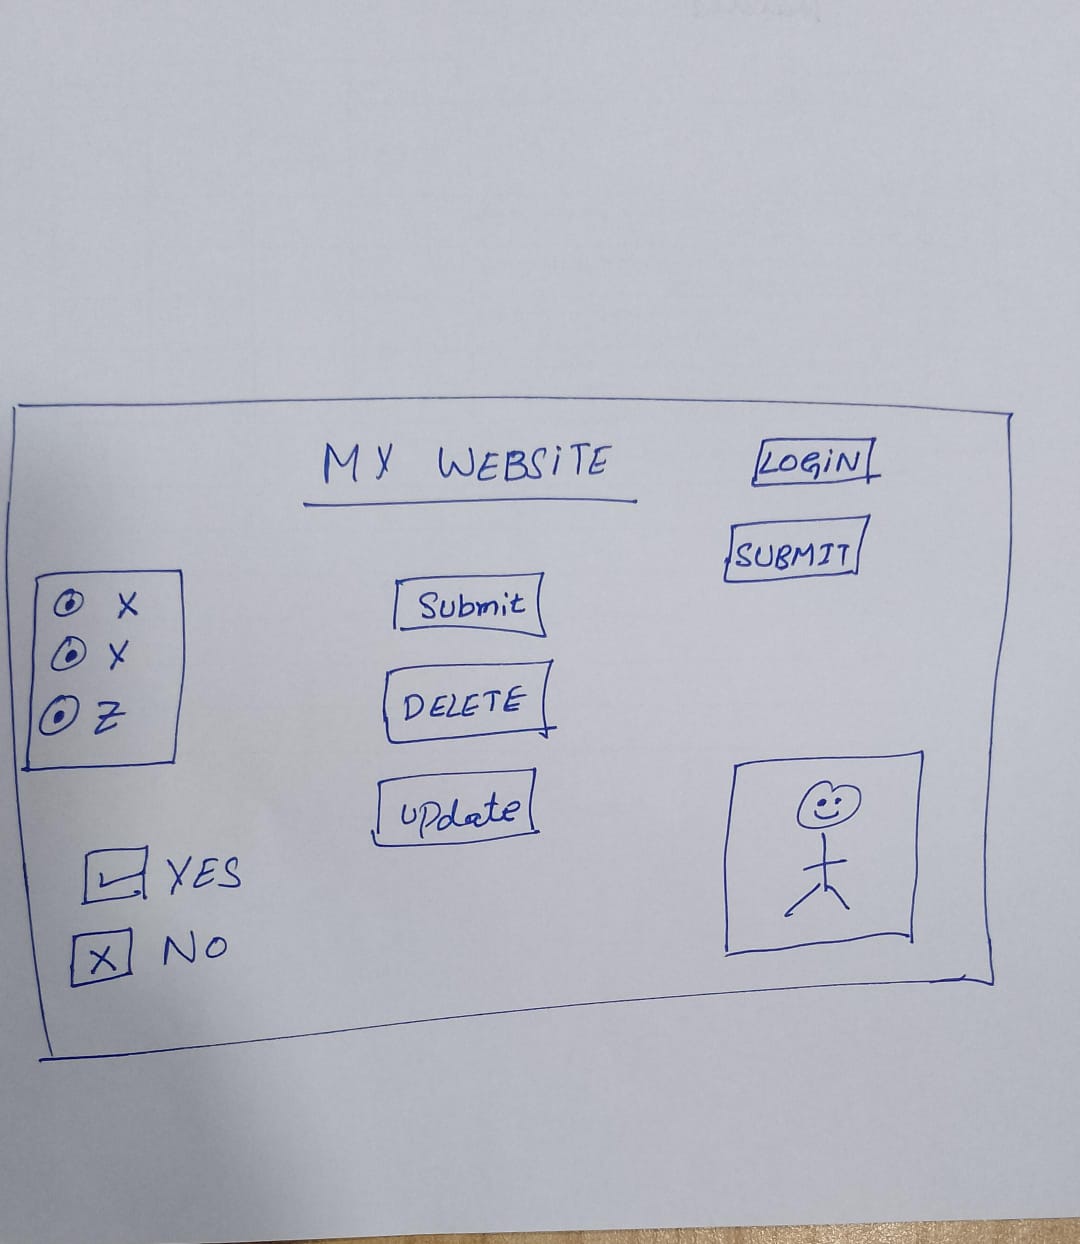 MY WEBSITE
LOGIN
SUBMIT
X
Y
Z
Submit
DELETE
UPdate
YES
NO